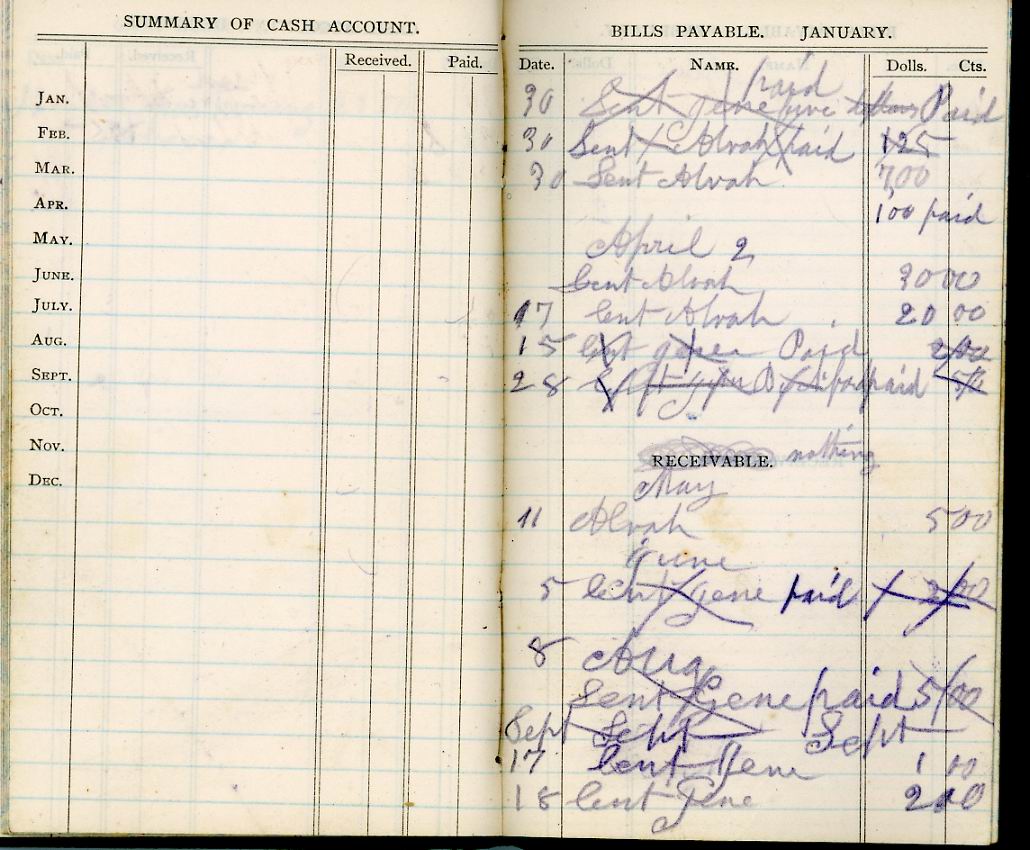 SUMMARY OF CASH ACCOUNT.
Received. Paid.
JAN.
FEB.
MAR.
APR.
MAY.
JUNE.
JULY.
AUG.
SEPT.
OCT.
NOV.
DEC.
BILLS PAYABLE. JANUARY.
Date. NAME. Dolls. Cts.
paid
30 Sent gene five dollars Paid
30 Sent Alvah paid 125
30 Sent Alvah 7,00
100 paid
April 2
Cent Alvah 30 00
17 Cent Alvah 20 00
15 Paid 200
28 paid
RECEIVABLE. nothing
May
11 Alvah 5 00
June
5 Cent Gene paid
8 Aug
Sent Gene paid 5/00
Sept Sept Sept
17 Cent Gene 1 00
18 Cent Gene 2 00